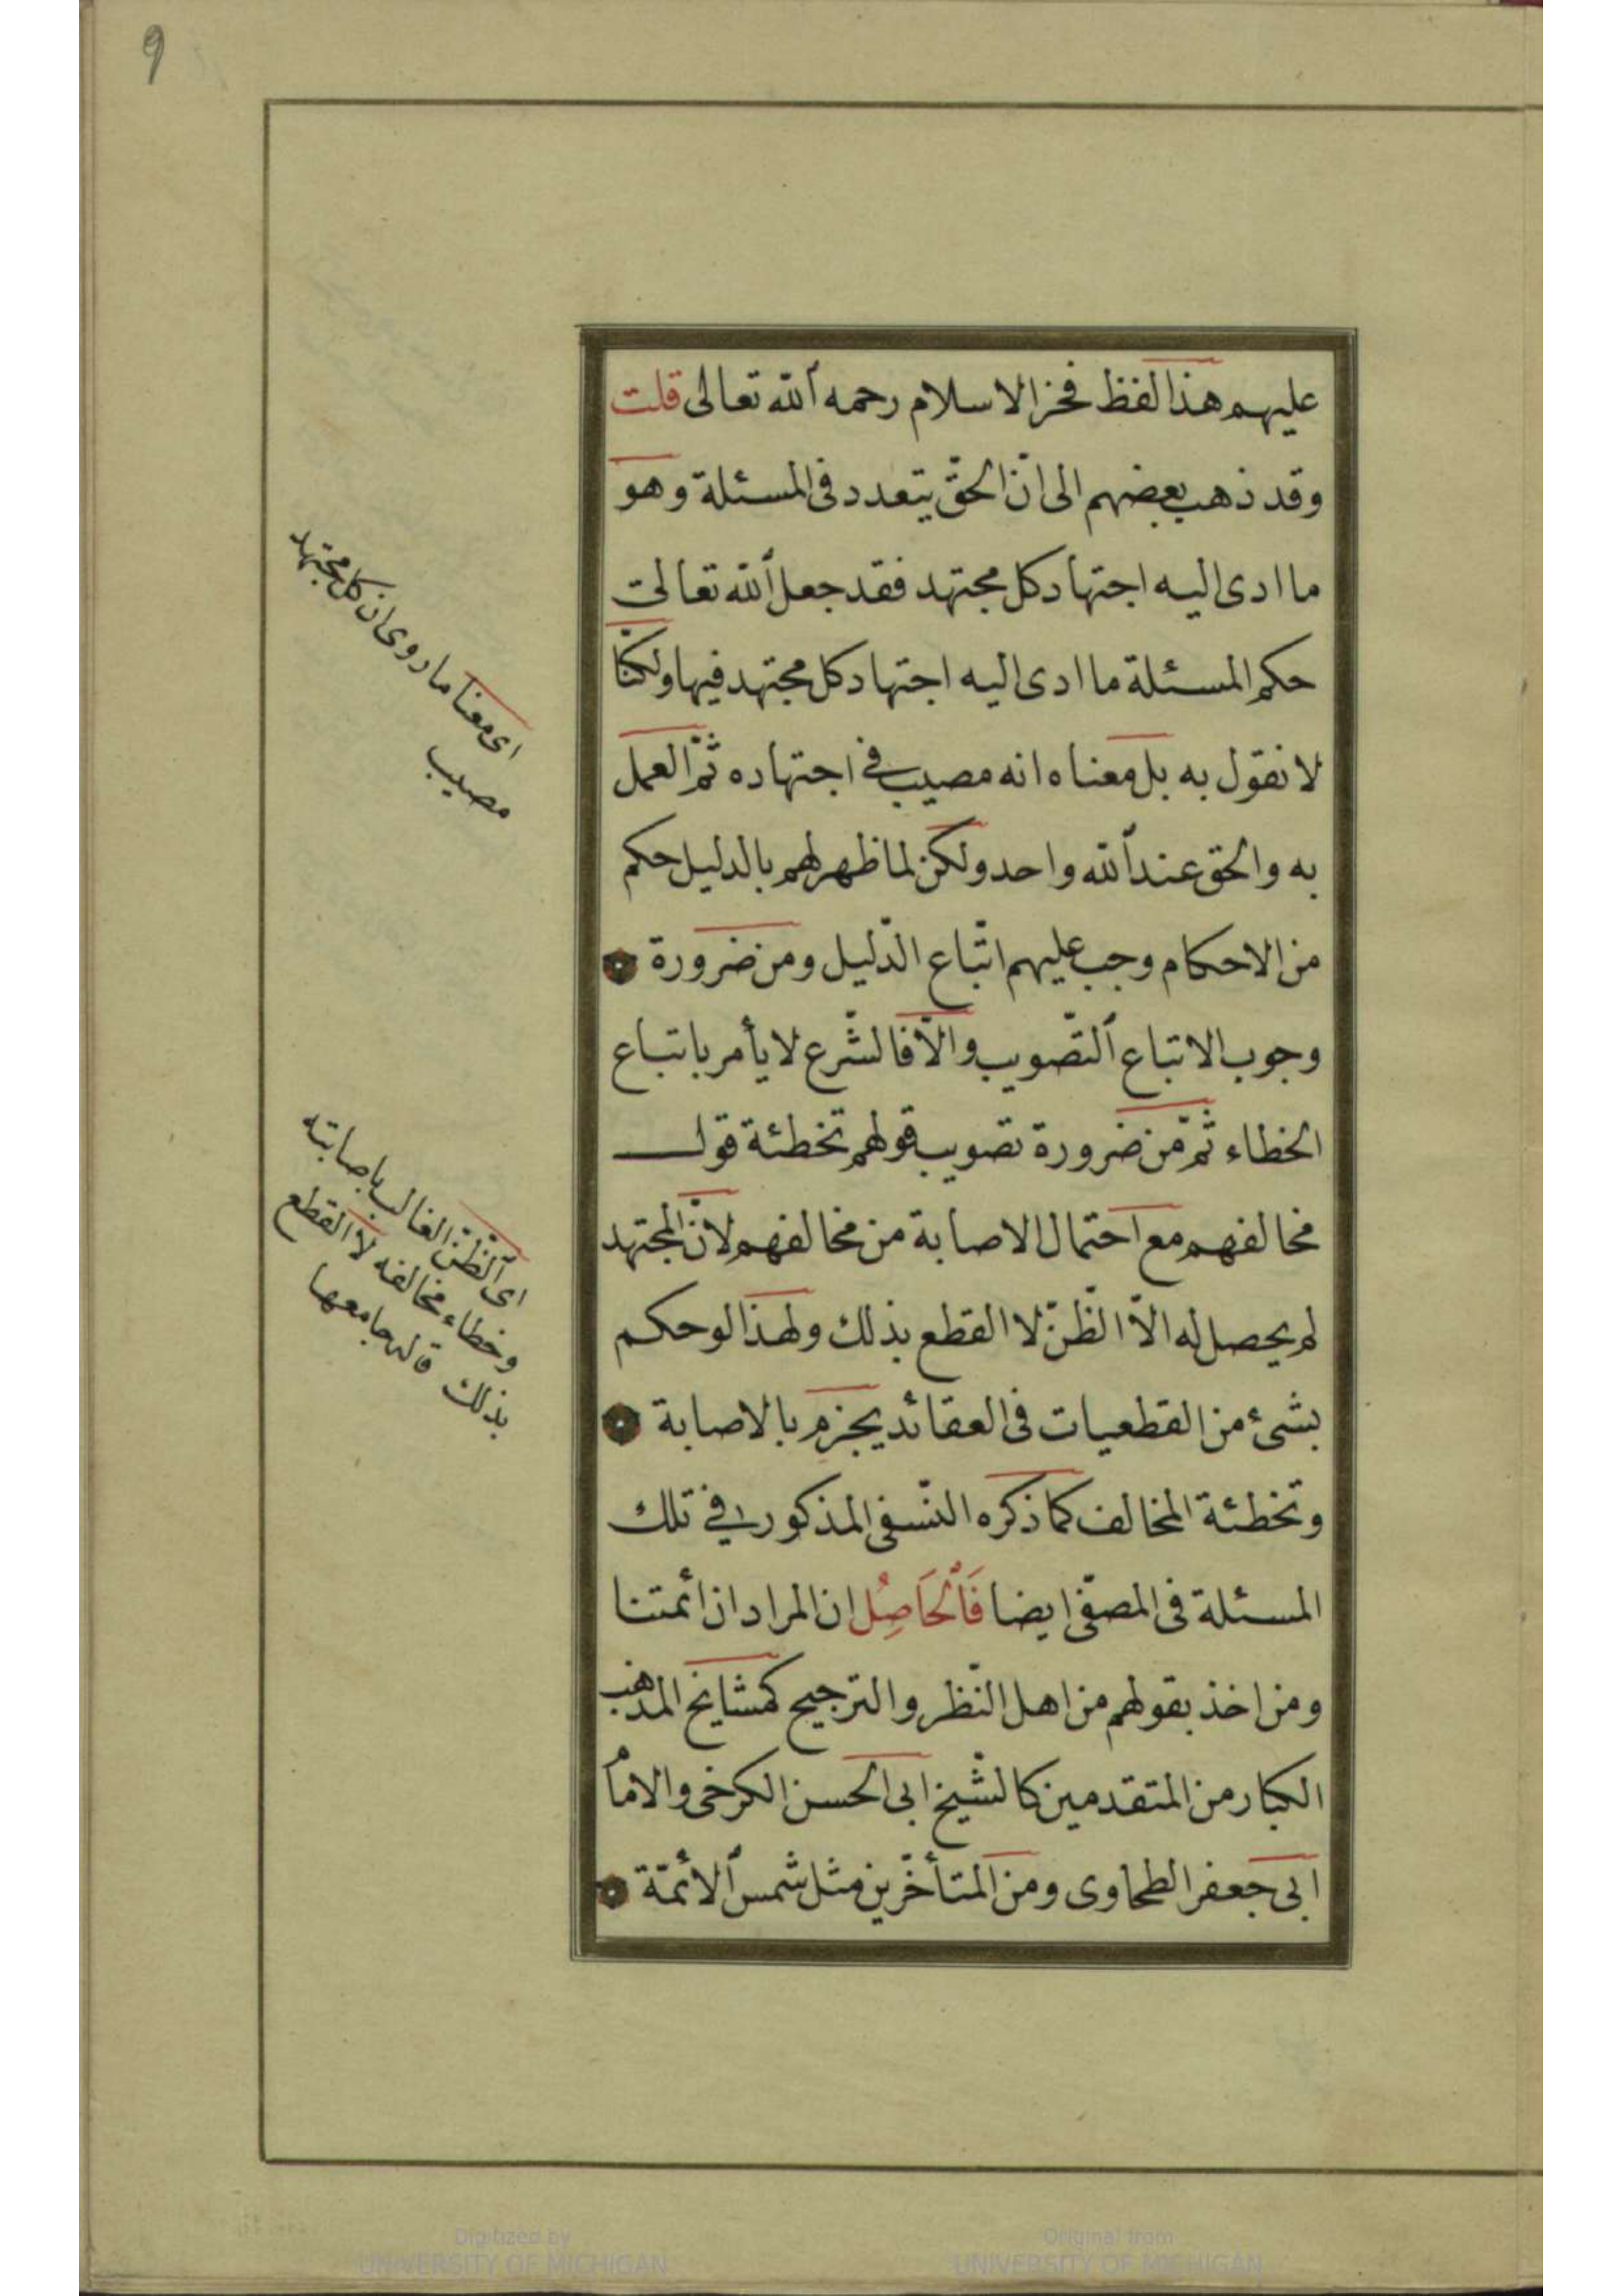 9
عليهم هذا لفظ فخر الاسلام رحمه الله تعالى قلت
وقد ذهب بعضهم الى انّ الحقّ يتعدد فى المسئلة وهو
ما ادى اليه اجتهاد كل مجتهد فقد جعل الله تعالى
حكم المسئلة ما ادى اليه اجتهاد كل مجتهد فيها ولكنّا
لا نقول به بل معناه انه مصيب في اجتهاده ثمّ العمل
به والحق عند الله واحد ولكن لما ظهر لهم بالدليل حكم
من الاحكام وجب عليهم اتّباع الدّليل ومن ضرورة
وجوب الاتباع التّصويب والّا فالشّرع لا يأمر باتباع
الخطاء ثمّ من ضرورة تصويب قولهم تخطئة قول
مخالفهم مع احتمال الاصابة من مخالفهم لانّ المجتهد
لم يحصل له الّا الظّنّ لا القطع بذلك ولهذا لو حكم
بشئ من القطعيات فى العقائد يجزم بالاصابة
وتخطئة المخالف كما ذكره النّسفى المذكور في تلك
المسئلة فى المصفّى ايضا فَالْحَاصِلُ ان المراد ان ائمتنا
ومن اخذ بقولهم من اهل النّظر والترجيح كمشايخ المذهب
الكبار من المتقدمين كالشّيخ ابى الحسن الكرخى والامام
ابى جعفر الطحاوى ومن المتأخّرين مثل شمس الأئمّة
اى معنا ما روى ان كل مجتهد
مصيب
اى الظّنّ الغالب باصابته
وخطاء مخالفه لا القطع
بذلك قاله جامعها
Digitized by
UNIVERSITY OF MICHIGAN
Original from
UNIVERSITY OF MICHIGAN